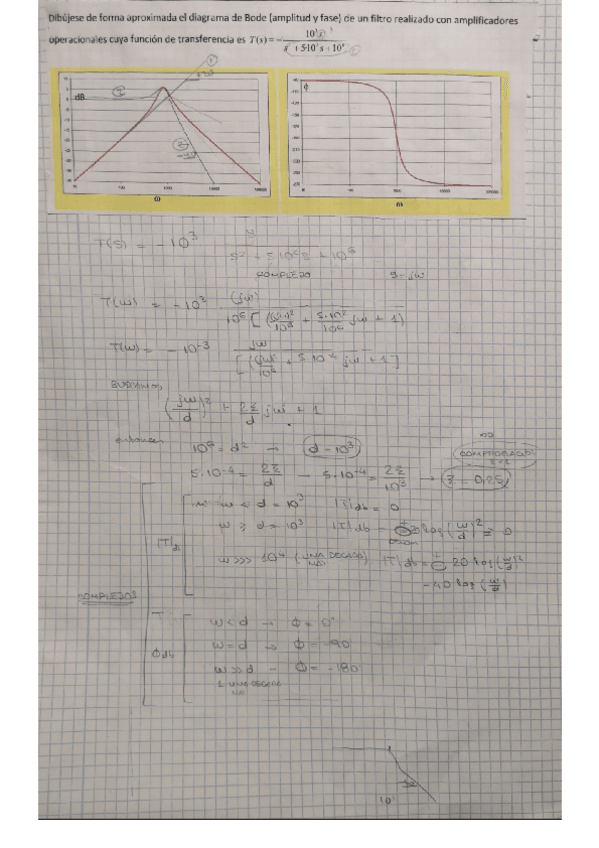 Dibújese de forma aproximada el diagrama de Bode (amplitud y fase) de un filtro realizado con amplificadores
operacionales cuya función de transferencia es T(s) = - 10³s / s² + 5·10²s + 10⁶
dB
ϕ
ω
ω
T(s) = -10³ s / s² + 5·10²s + 10⁶
COMPLEJO s=jω
T(ω) = -10³ (jω) / 10⁶ [ (jω)²/10⁶ + 5·10²/10⁶ jω + 1 ]
T(ω) = -10⁻³ jω / [ (jω)²/10⁶ + 5·10⁻⁴ jω + 1 ]
BUSCAMOS
(jω/d)² + 2ξ/d jω + 1
entonces 10⁶ = d² → d = 10³
5·10⁻⁴ = 2ξ/d → 5·10⁻⁴ = 2ξ/10³ → ξ = 0,25
ω < d = 10³ |T|db = 0
ω ≥ d = 10³ |T|db = 20 log (ω/d)² = 0
|T|db
ω >>> 10⁴ (UNA DECADA MÁS) |T|db = 20 log (ω/d)²
-40 log (ω/d)
COMPLEJOS
ω < d → ϕ = 0°
ω = d → ϕ = -90
ω >> d → ϕ = -180
1 UNA DECADA